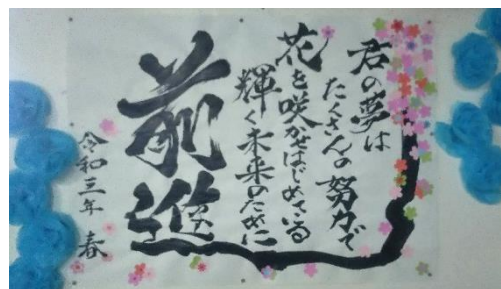 君の夢は
たくさんの努力で
花を咲かせはじめている
輝く未来のために
前進
令和三年 春